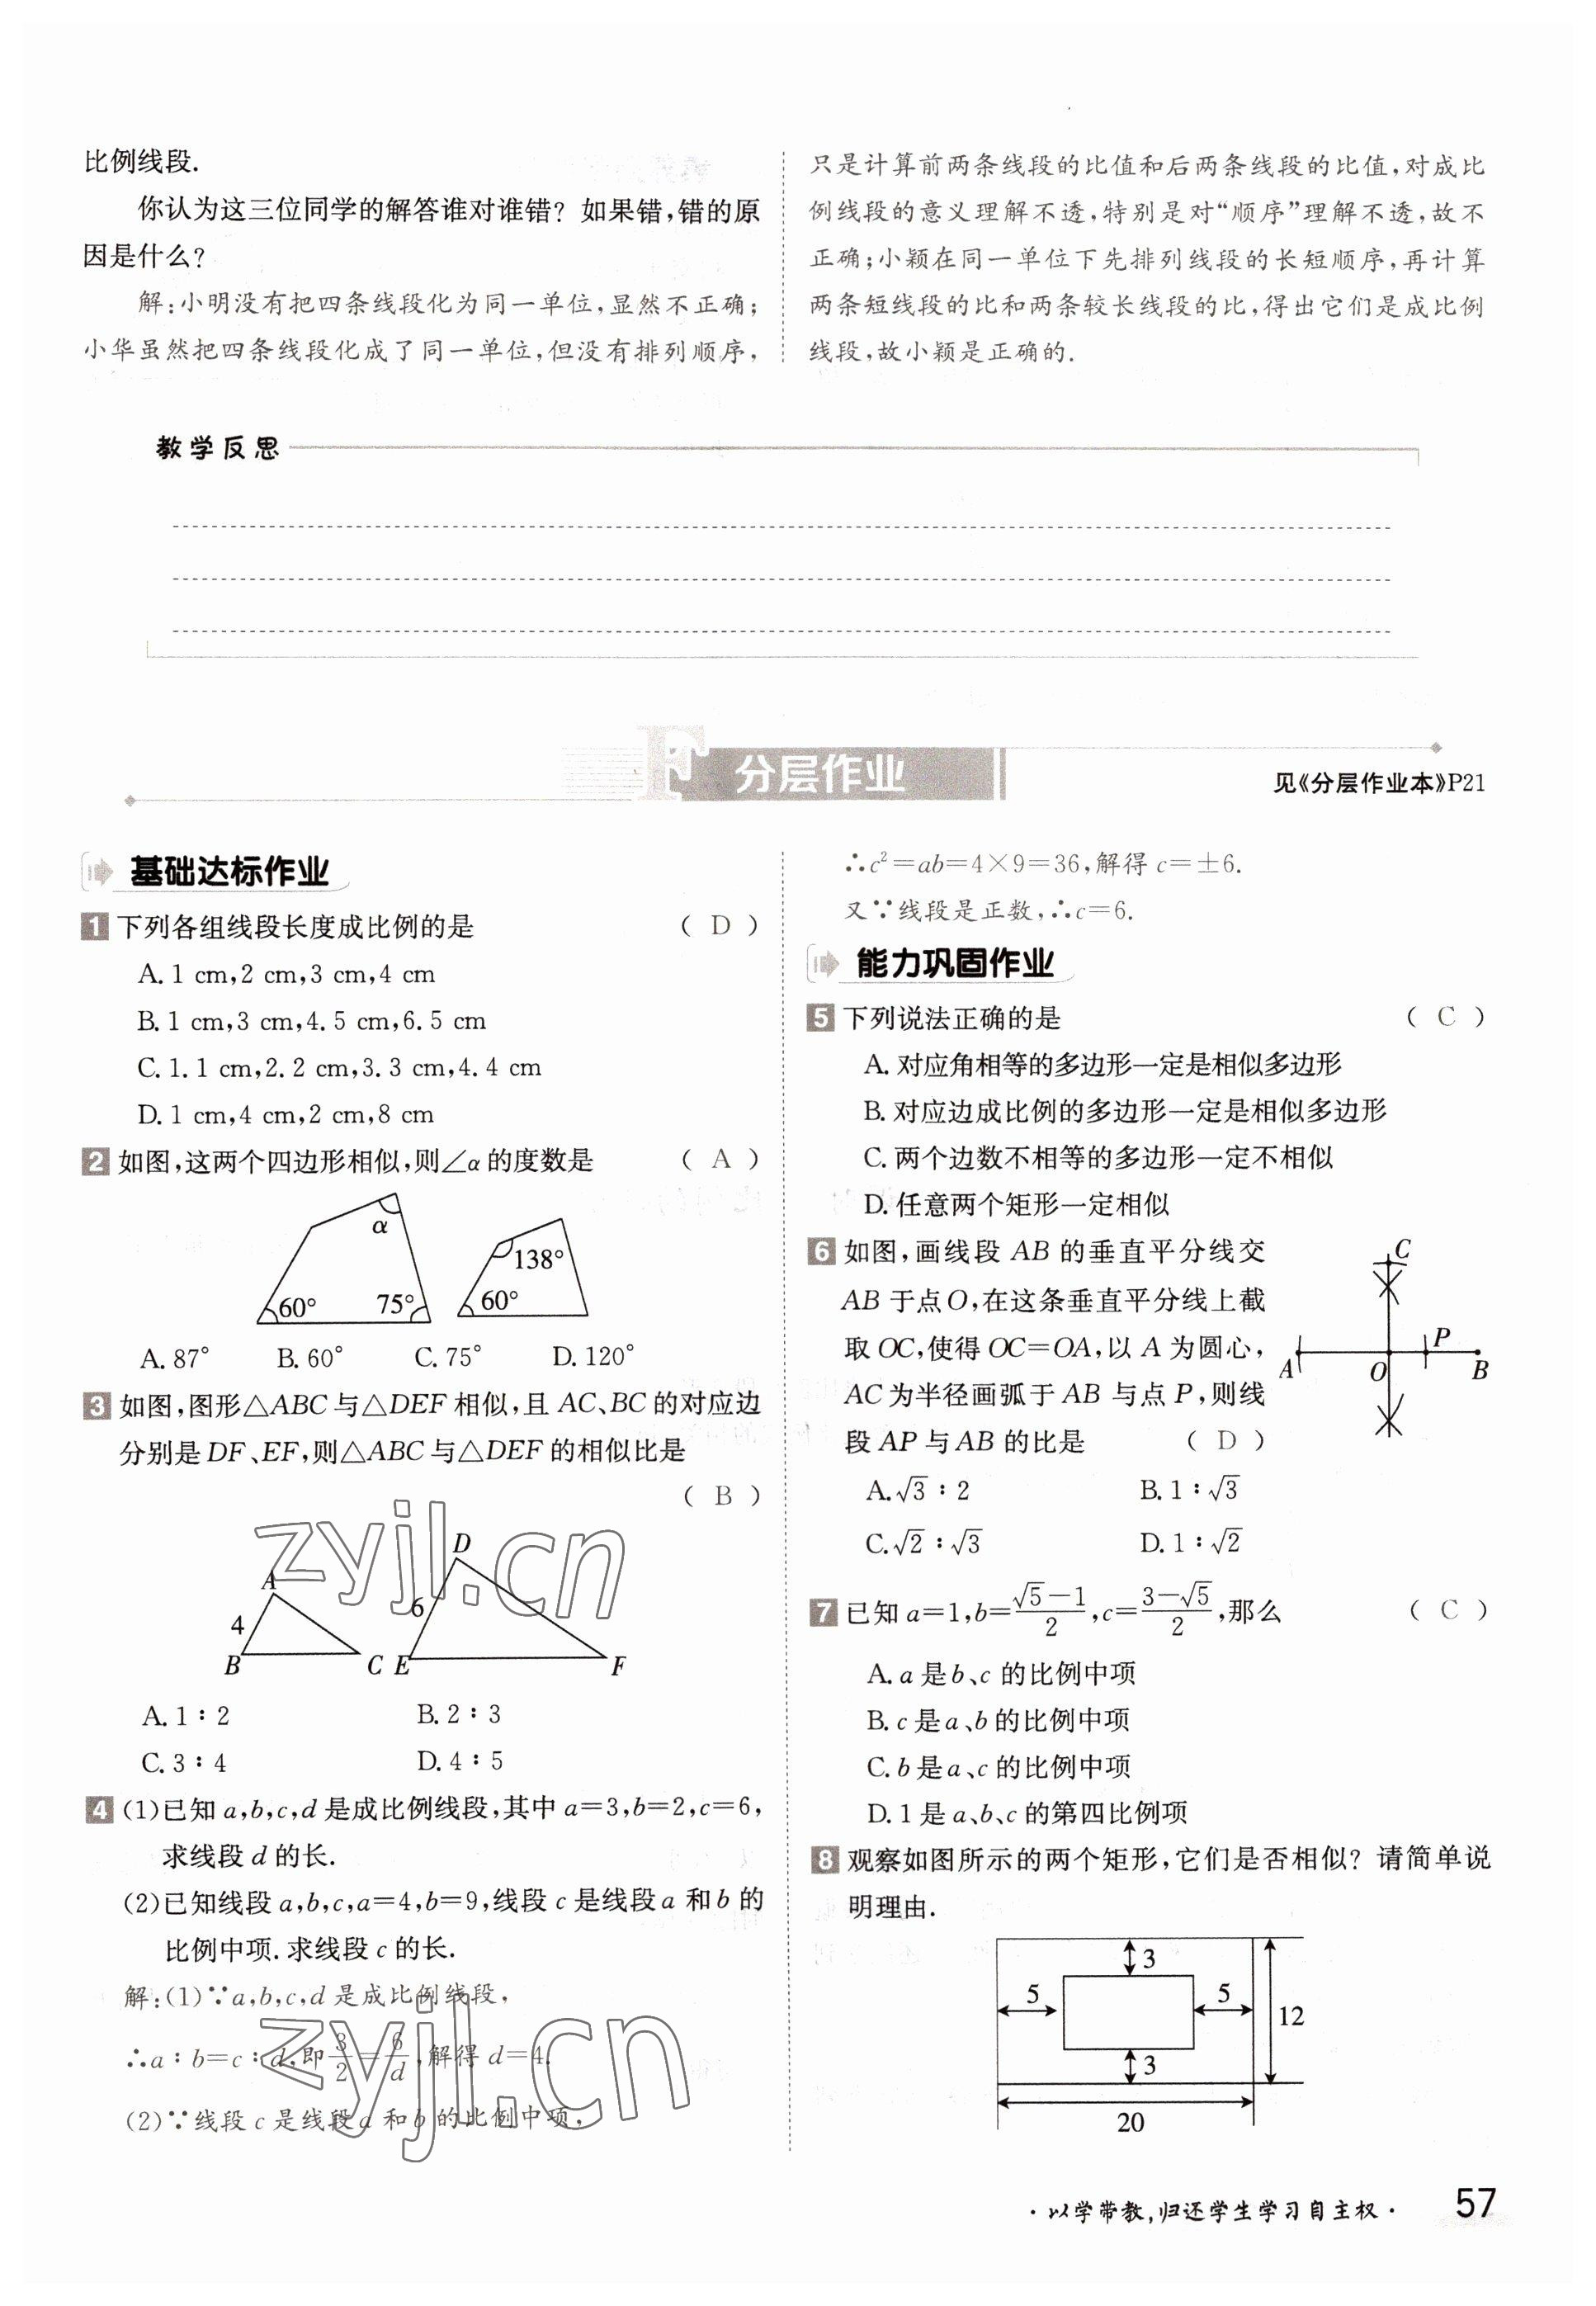 比例线段.
你认为这三位同学的解答谁对谁错？如果错，错的原
因是什么？
解：小明没有把四条线段化为同一单位，显然不正确；
小华虽然把四条线段化成了同一单位，但没有排列顺序，
只是计算前两条线段的比值和后两条线段的比值，对成比
例线段的意义理解不透，特别是对“顺序”理解不透，故不
正确；小颖在同一单位下先排列线段的长短顺序，再计算
两条短线段的比和两条较长线段的比，得出它们是成比例
线段，故小颖是正确的.
教学反思
F 分层作业
见《分层作业本》P21
基础达标作业
1 下列各组线段长度成比例的是 （ D ）
A. 1 cm,2 cm,3 cm,4 cm
B. 1 cm,3 cm,4.5 cm,6.5 cm
C. 1.1 cm,2.2 cm,3.3 cm,4.4 cm
D. 1 cm,4 cm,2 cm,8 cm
2 如图，这两个四边形相似，则∠α的度数是 （ A ）
α
60° 75°
138°
60°
A. 87° B. 60° C. 75° D. 120°
3 如图，图形△ABC与△DEF相似，且AC、BC的对应边
分别是DF、EF，则△ABC与△DEF的相似比是
（ B ）
zyjl.cn
A
4
B C
D
6
E F
A. 1∶2 B. 2∶3
C. 3∶4 D. 4∶5
4 (1)已知a,b,c,d是成比例线段，其中a=3,b=2,c=6,
求线段d的长.
(2)已知线段a,b,c,a=4,b=9,线段c是线段a和b的
比例中项.求线段c的长.
解：(1)∵a,b,c,d是成比例线段，
∴a∶b=c∶d,即3/2=6/d,解得d=4.
(2)∵线段c是线段a和b的比例中项，
zyjl.cn
∴c²=ab=4×9=36,解得c=±6.
又∵线段是正数，∴c=6.
能力巩固作业
5 下列说法正确的是 （ C ）
A. 对应角相等的多边形一定是相似多边形
B. 对应边成比例的多边形一定是相似多边形
C. 两个边数不相等的多边形一定不相似
D. 任意两个矩形一定相似
6 如图，画线段AB的垂直平分线交
AB于点O，在这条垂直平分线上截
取OC，使得OC=OA，以A为圆心，
AC为半径画弧于AB与点P，则线
段AP与AB的比是 （ D ）
C
P
A O B
A. √3∶2 B. 1∶√3
C. √2∶√3 D. 1∶√2
7 已知a=1,b=(√5−1)/2,c=(3−√5)/2,那么 （ C ）
A. a是b、c的比例中项
B. c是a、b的比例中项
C. b是a、c的比例中项
D. 1是a、b、c的第四比例项
8 观察如图所示的两个矩形，它们是否相似？请简单说
明理由.
3
5 5
12
3
20
·以学带教，归还学生学习自主权·
57